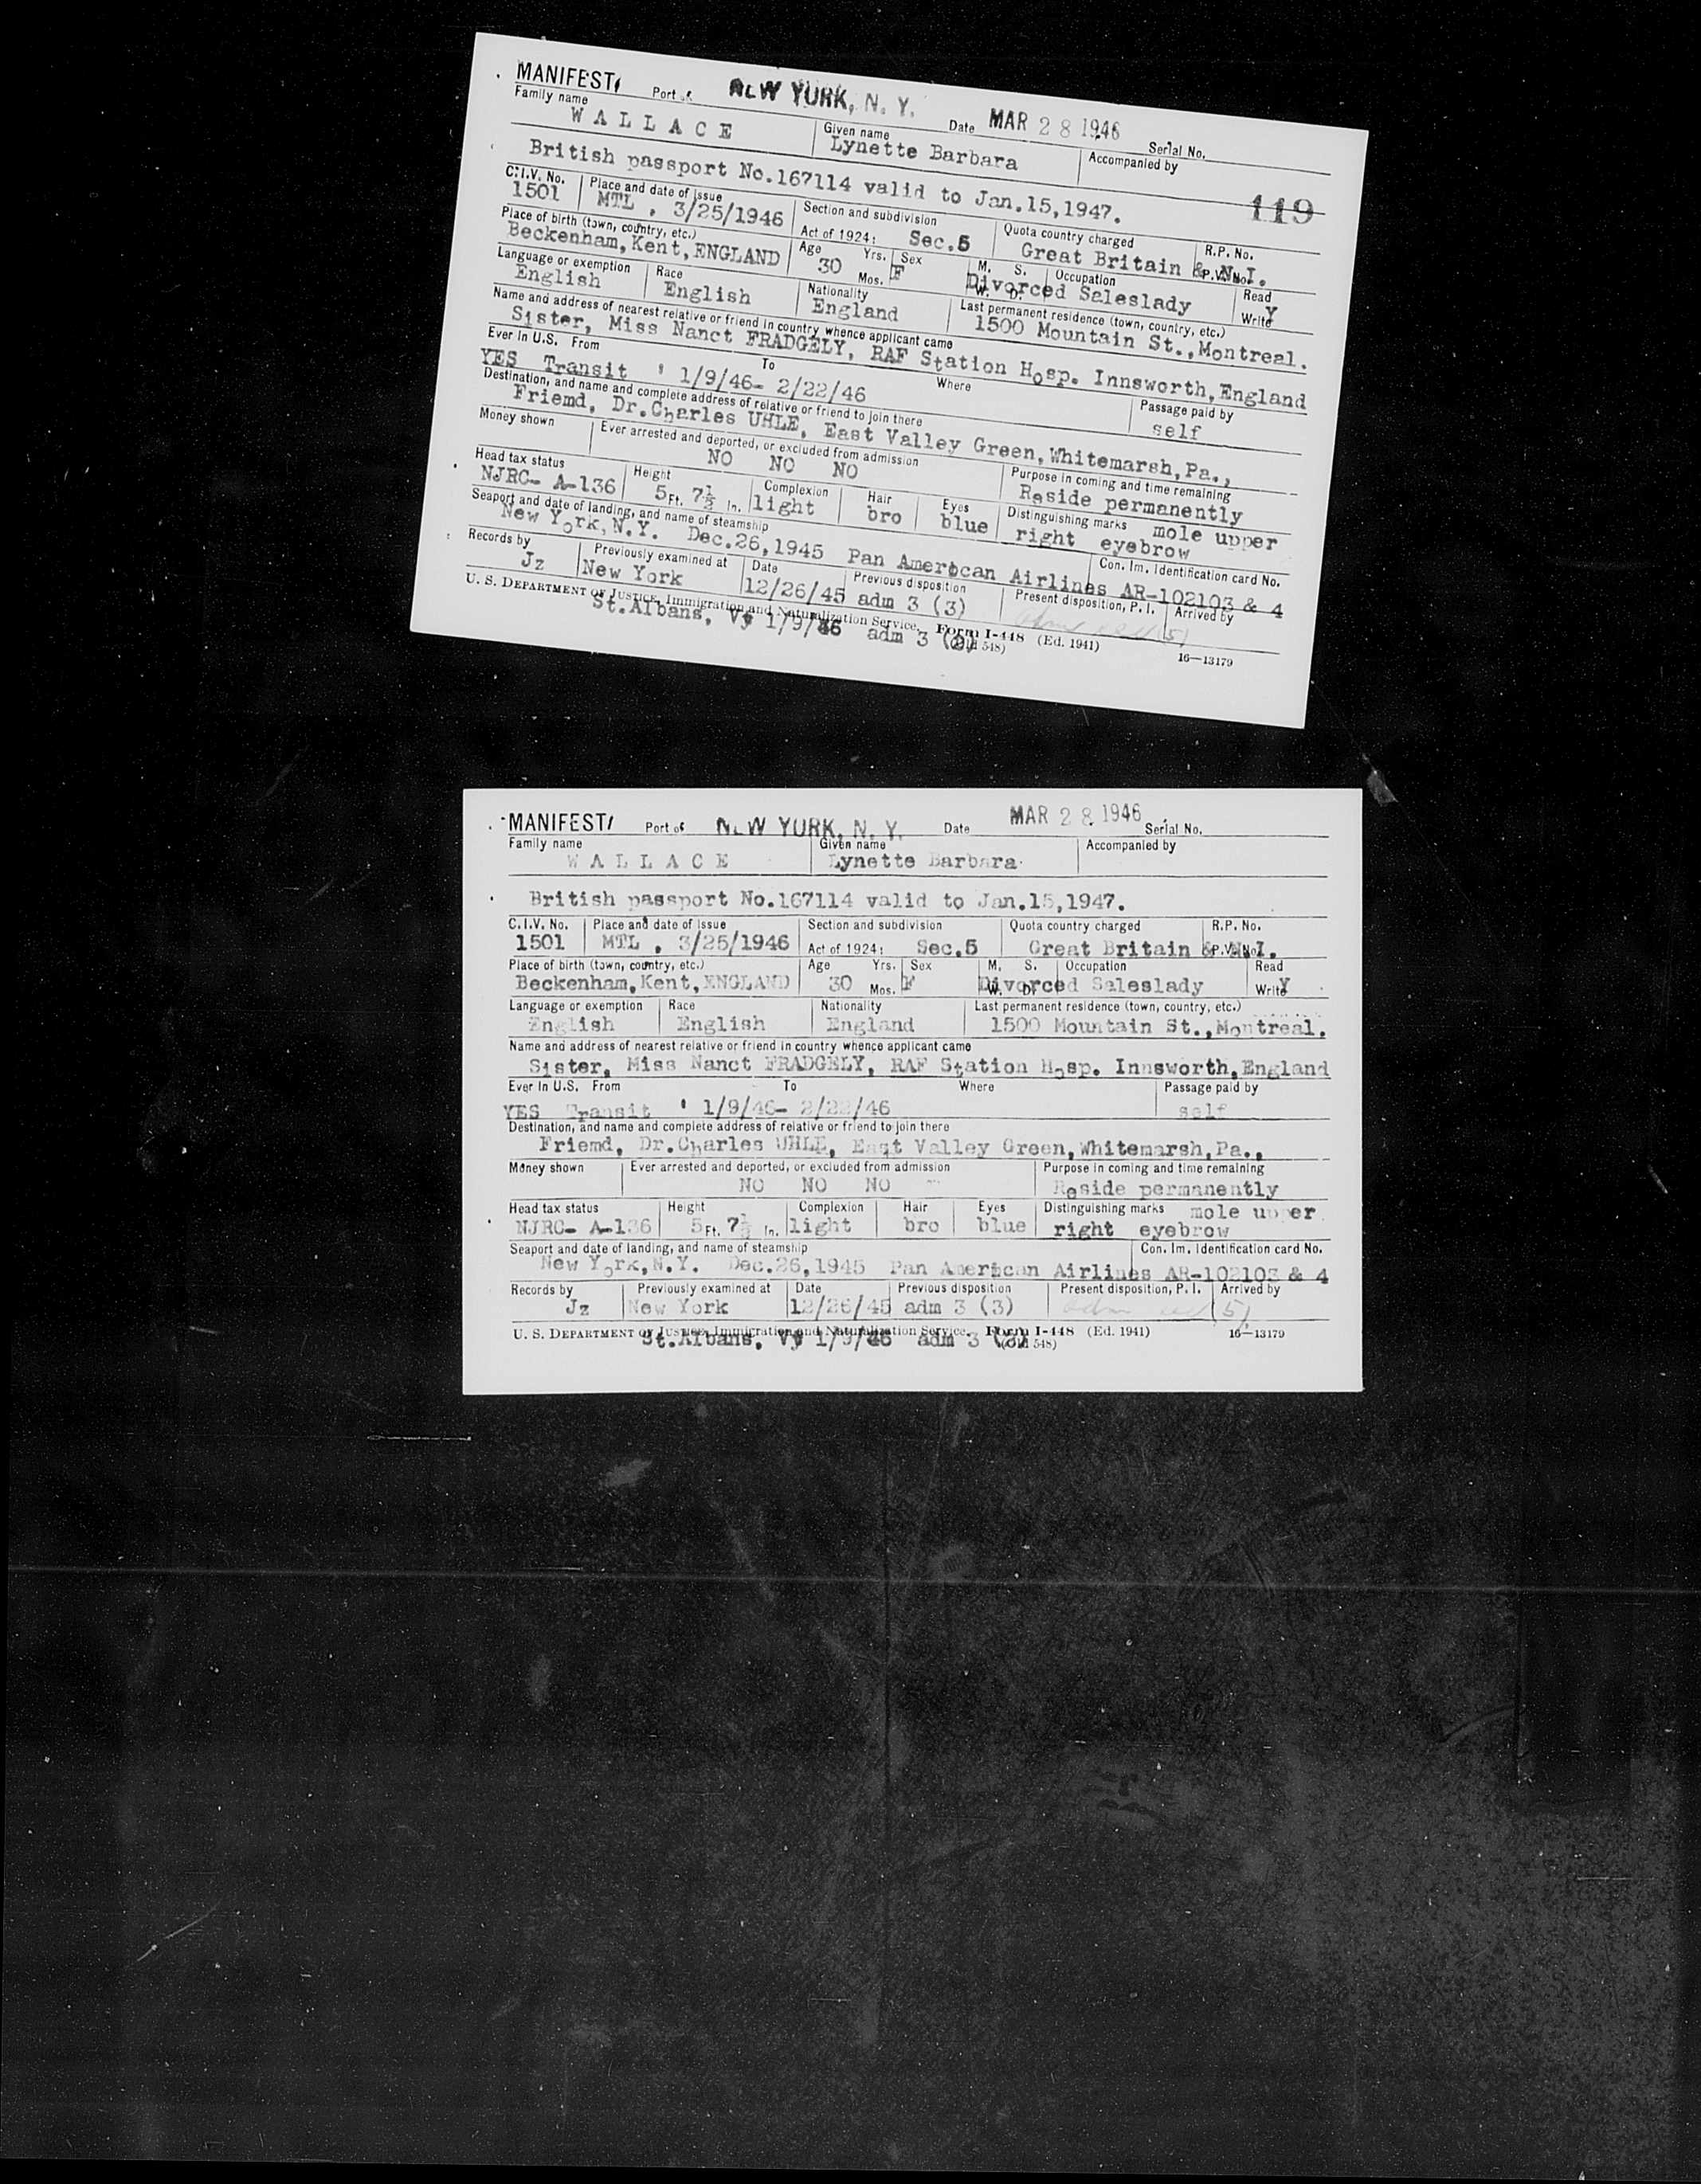 MANIFEST Port of NEW YORK, N. Y. Date MAR 28 1946 Serial No.
Family name Given name Accompanied by
WALLACE Lynette Barbara
British passport No.167114 valid to Jan.15,1947. 119
C.I.V. No. Place and date of issue Section and subdivision Quota country charged R.P. No.
1501 MTL , 3/25/1946 Act of 1924: Sec.5 Great Britain & N.I. P.V. No.
Place of birth (town, country, etc.) Age Yrs. Sex M. S. Occupation Read
Beckenham,Kent,ENGLAND 30 Mos. F W. D. Divorced Saleslady Write Y
Language or exemption Race Nationality Last permanent residence (town, country, etc.)
English English England 1500 Mountain St.,Montreal.
Name and address of nearest relative or friend in country whence applicant came
Sister, Miss Nanct FRADGELY, RAF Station Hosp. Innsworth,England
Ever in U.S. From To Where Passage paid by
YES Transit ' 1/9/46- 2/22/46 self
Destination, and name and complete address of relative or friend to join there
Friemd, Dr.Charles UHLE, East Valley Green,Whitemarsh,Pa.,
Money shown Ever arrested and deported, or excluded from admission Purpose in coming and time remaining
NO NO NO Reside permanently
Head tax status Height Complexion Hair Eyes Distinguishing marks mole upper
NJRC- A-136 5 Ft. 7½ In. light bro blue right eyebrow
Seaport and date of landing, and name of steamship Con. Im. Identification card No.
New York,N.Y. Dec.26,1945 Pan American Airlines AR-102103 & 4
Records by Previously examined at Date Previous disposition Present disposition, P. I. Arrived by
Jz New York 12/26/45 adm 3 (3) (5)
U. S. DEPARTMENT OF JUSTICE, Immigration and Naturalization Service. Form I-448 (Ed. 1941) 16—13179
St.Albans, Vt 1/9/46 adm 3 (2) (Old 548)
MANIFEST Port of NEW YORK, N. Y. Date MAR 28 1946 Serial No.
Family name Given name Accompanied by
WALLACE Lynette Barbara
British passport No.167114 valid to Jan.15,1947.
C.I.V. No. Place and date of issue Section and subdivision Quota country charged R.P. No.
1501 MTL , 3/25/1946 Act of 1924: Sec.5 Great Britain & N.I. P.V. No.
Place of birth (town, country, etc.) Age Yrs. Sex M. S. Occupation Read
Beckenham,Kent,ENGLAND 30 Mos. F W. D. Divorced Saleslady Write Y
Language or exemption Race Nationality Last permanent residence (town, country, etc.)
English English England 1500 Mountain St.,Montreal.
Name and address of nearest relative or friend in country whence applicant came
Sister, Miss Nanct FRADGELY, RAF Station Hosp. Innsworth,England
Ever in U.S. From To Where Passage paid by
YES Transit ' 1/9/46- 2/22/46 self
Destination, and name and complete address of relative or friend to join there
Friemd, Dr.Charles UHLE, East Valley Green,Whitemarsh,Pa.,
Money shown Ever arrested and deported, or excluded from admission Purpose in coming and time remaining
NO NO NO Reside permanently
Head tax status Height Complexion Hair Eyes Distinguishing marks mole upper
NJRC- A-136 5 Ft. 7½ In. light bro blue right eyebrow
Seaport and date of landing, and name of steamship Con. Im. Identification card No.
New York,N.Y. Dec.26,1945 Pan American Airlines AR-102103 & 4
Records by Previously examined at Date Previous disposition Present disposition, P. I. Arrived by
Jz New York 12/26/45 adm 3 (3) (5)
U. S. DEPARTMENT OF JUSTICE, Immigration and Naturalization Service. Form I-448 (Ed. 1941) 16—13179
St.Albans, Vt 1/9/46 adm 3 (2) (Old 548)